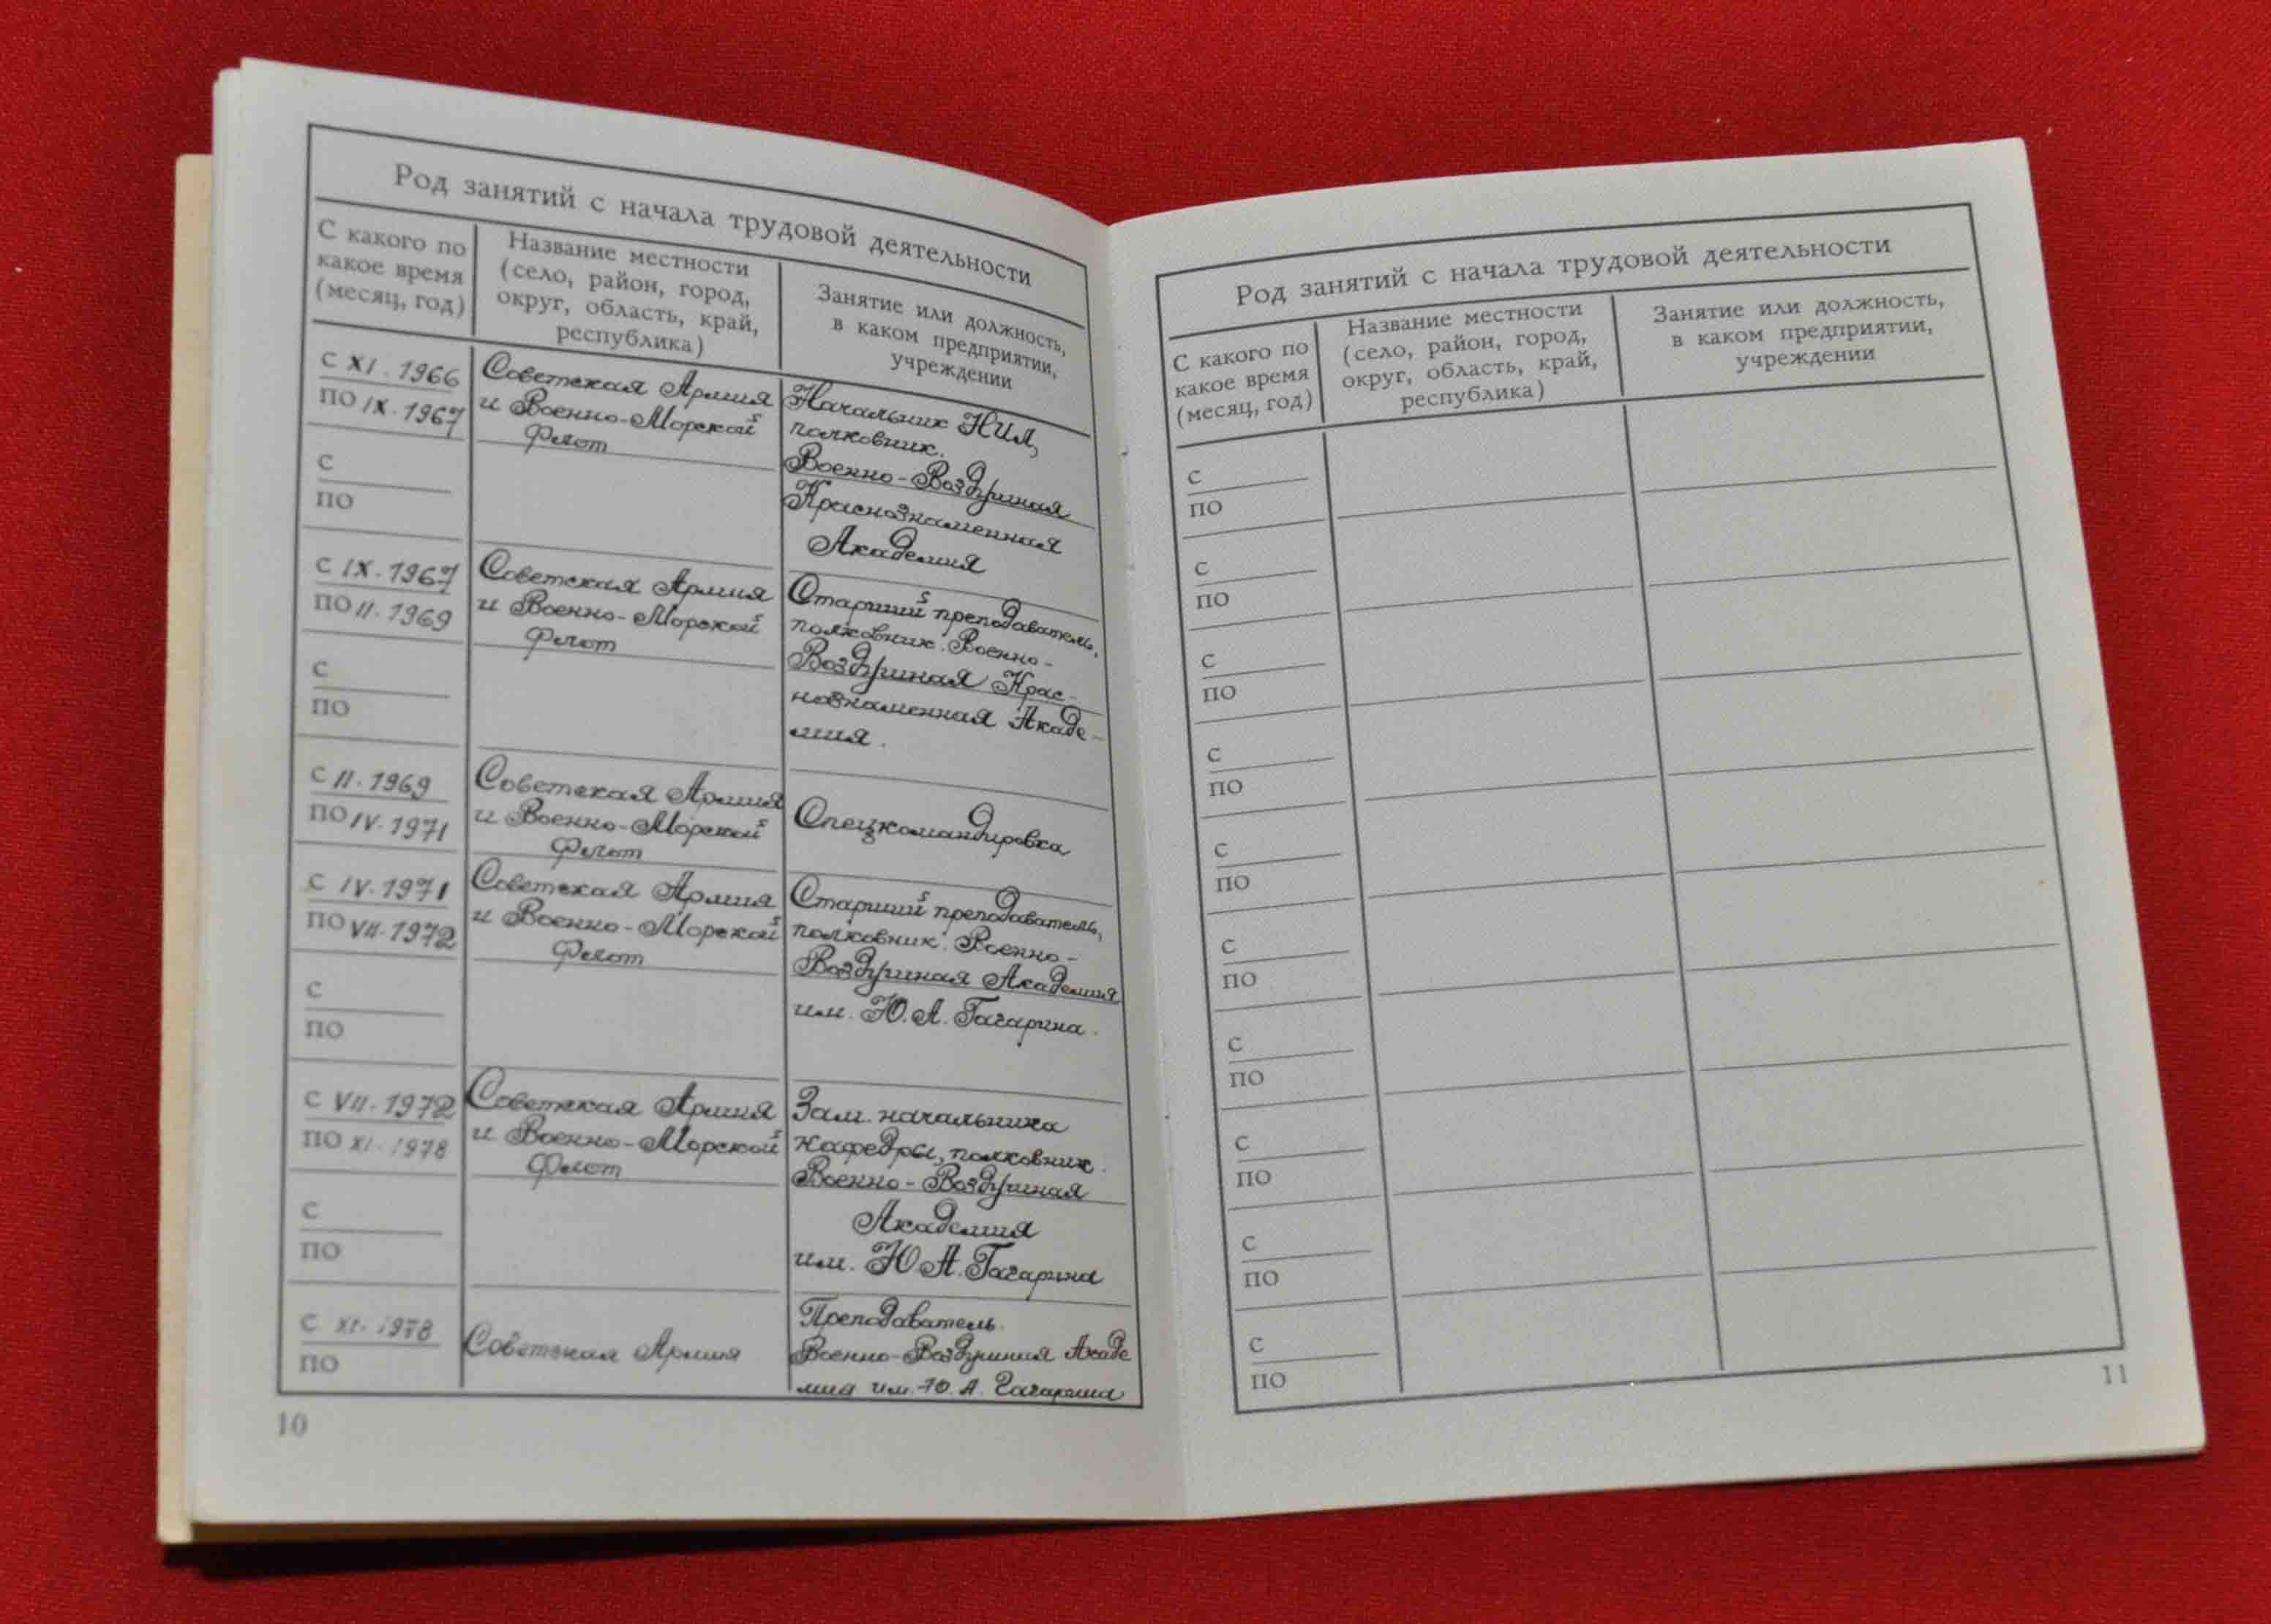 Род занятий с начала трудовой деятельности
С какого по
какое время
(месяц, год)
Название местности
(село, район, город,
округ, область, край,
республика)
Занятие или должность,
в каком предприятии,
учреждении
с XI. 1966
по IX. 1967
Советская Армия
и Военно-Морской
Флот
Начальник НИЛ,
полковник.
Военно-Воздушная
Краснознаменная
Академия
с
по
с IX. 1967
по II. 1969
Советская Армия
и Военно-Морской
Флот
Старший преподаватель,
полковник. Военно-
Воздушная Крас-
нознаменная Акаде-
мия.
с
по
с II. 1969
по IV. 1971
Советская Армия
и Военно-Морской
Флот
Спецкомандировка
с IV. 1971
по VII. 1972
Советская Армия
и Военно-Морской
Флот
Старший преподаватель,
полковник. Военно-
Воздушная Академия
им. Ю. А. Гагарина.
с
по
с VII. 1972
по XI. 1978
Советская Армия
и Военно-Морской
Флот
Зам. начальника
кафедры, полковник.
Военно-Воздушная
Академия
им. Ю. А. Гагарина
с
по
с XI. 1978
по
Советская Армия
Преподаватель.
Военно-Воздушная Акаде
мия им. Ю. А. Гагарина
10
Род занятий с начала трудовой деятельности
С какого по
какое время
(месяц, год)
Название местности
(село, район, город,
округ, область, край,
республика)
Занятие или должность,
в каком предприятии,
учреждении
с
по
с
по
с
по
с
по
с
по
с
по
с
по
с
по
с
по
с
по
11